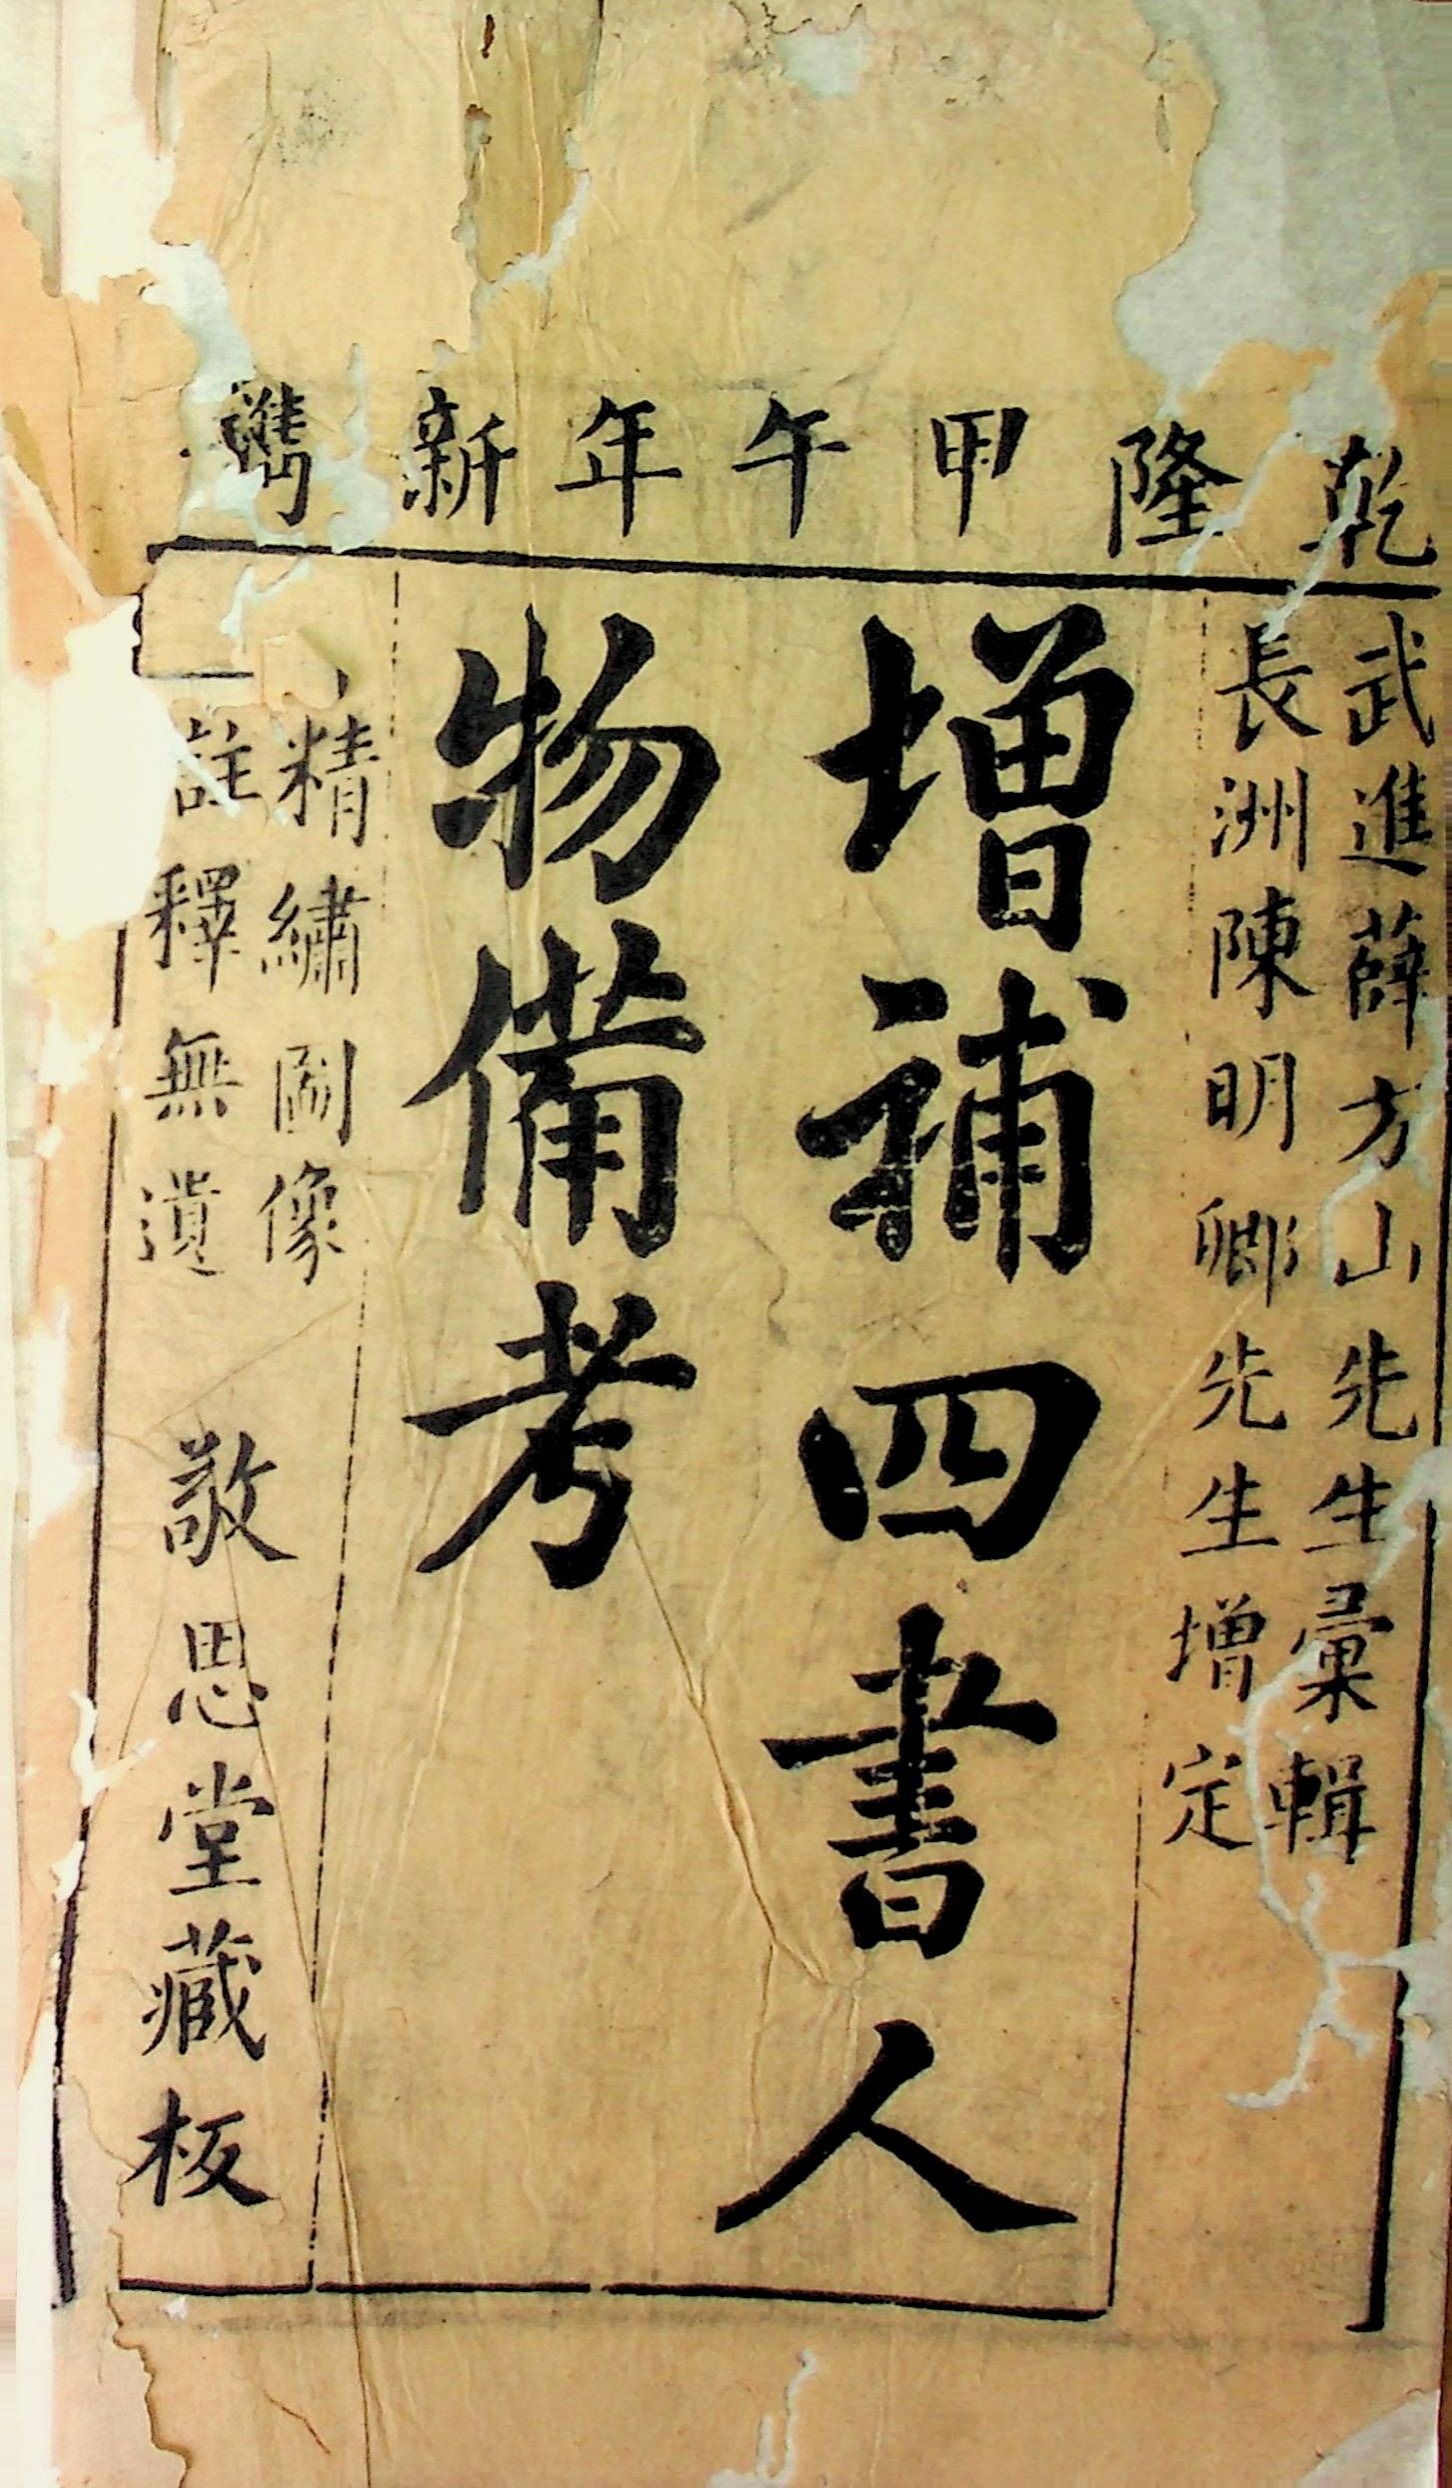 乾隆甲午年新鐫
武進薛方山先生彙輯
長洲陳明卿先生增定
增補四書人
物備考
精繡圖像
註釋無遺
敬思堂藏板